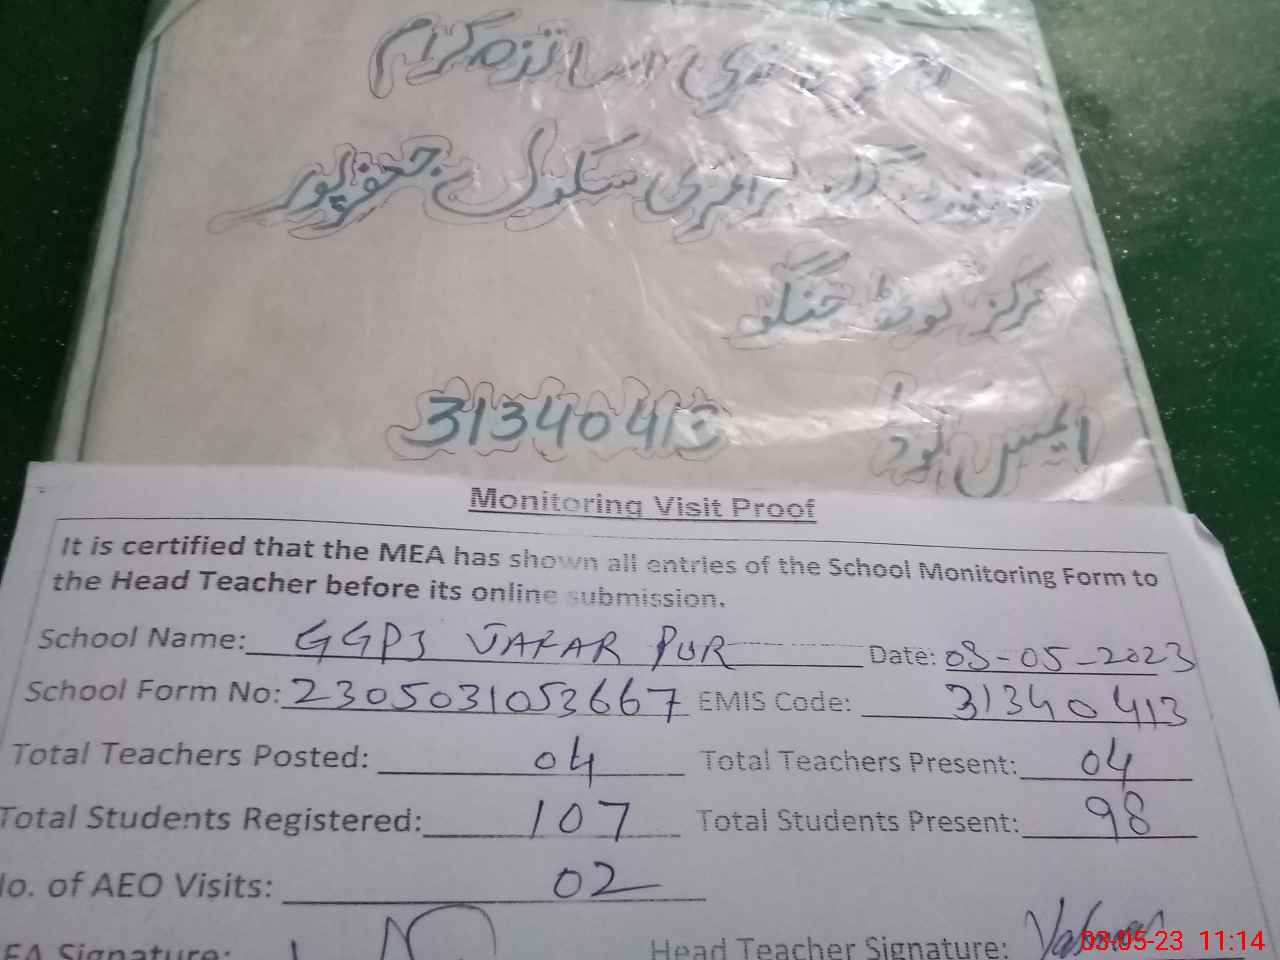 حاضری اساتذہ کرام
گورنمنٹ گرلز پرائمری سکول جعفرپور
مرکز
ایمس کوڈ 31340413
Monitoring Visit Proof
It is certified that the MEA has shown all entries of the School Monitoring Form to
the Head Teacher before its online submission.
School Name: GGPS JAFAR PUR Date: 03-05-2023
School Form No: 2305031053667 EMIS Code: 31340413
Total Teachers Posted: 04 Total Teachers Present: 04
Total Students Registered: 107 Total Students Present: 98
No. of AEO Visits: 02
EA Signature: Head Teacher Signature:
03-05-23 11:14